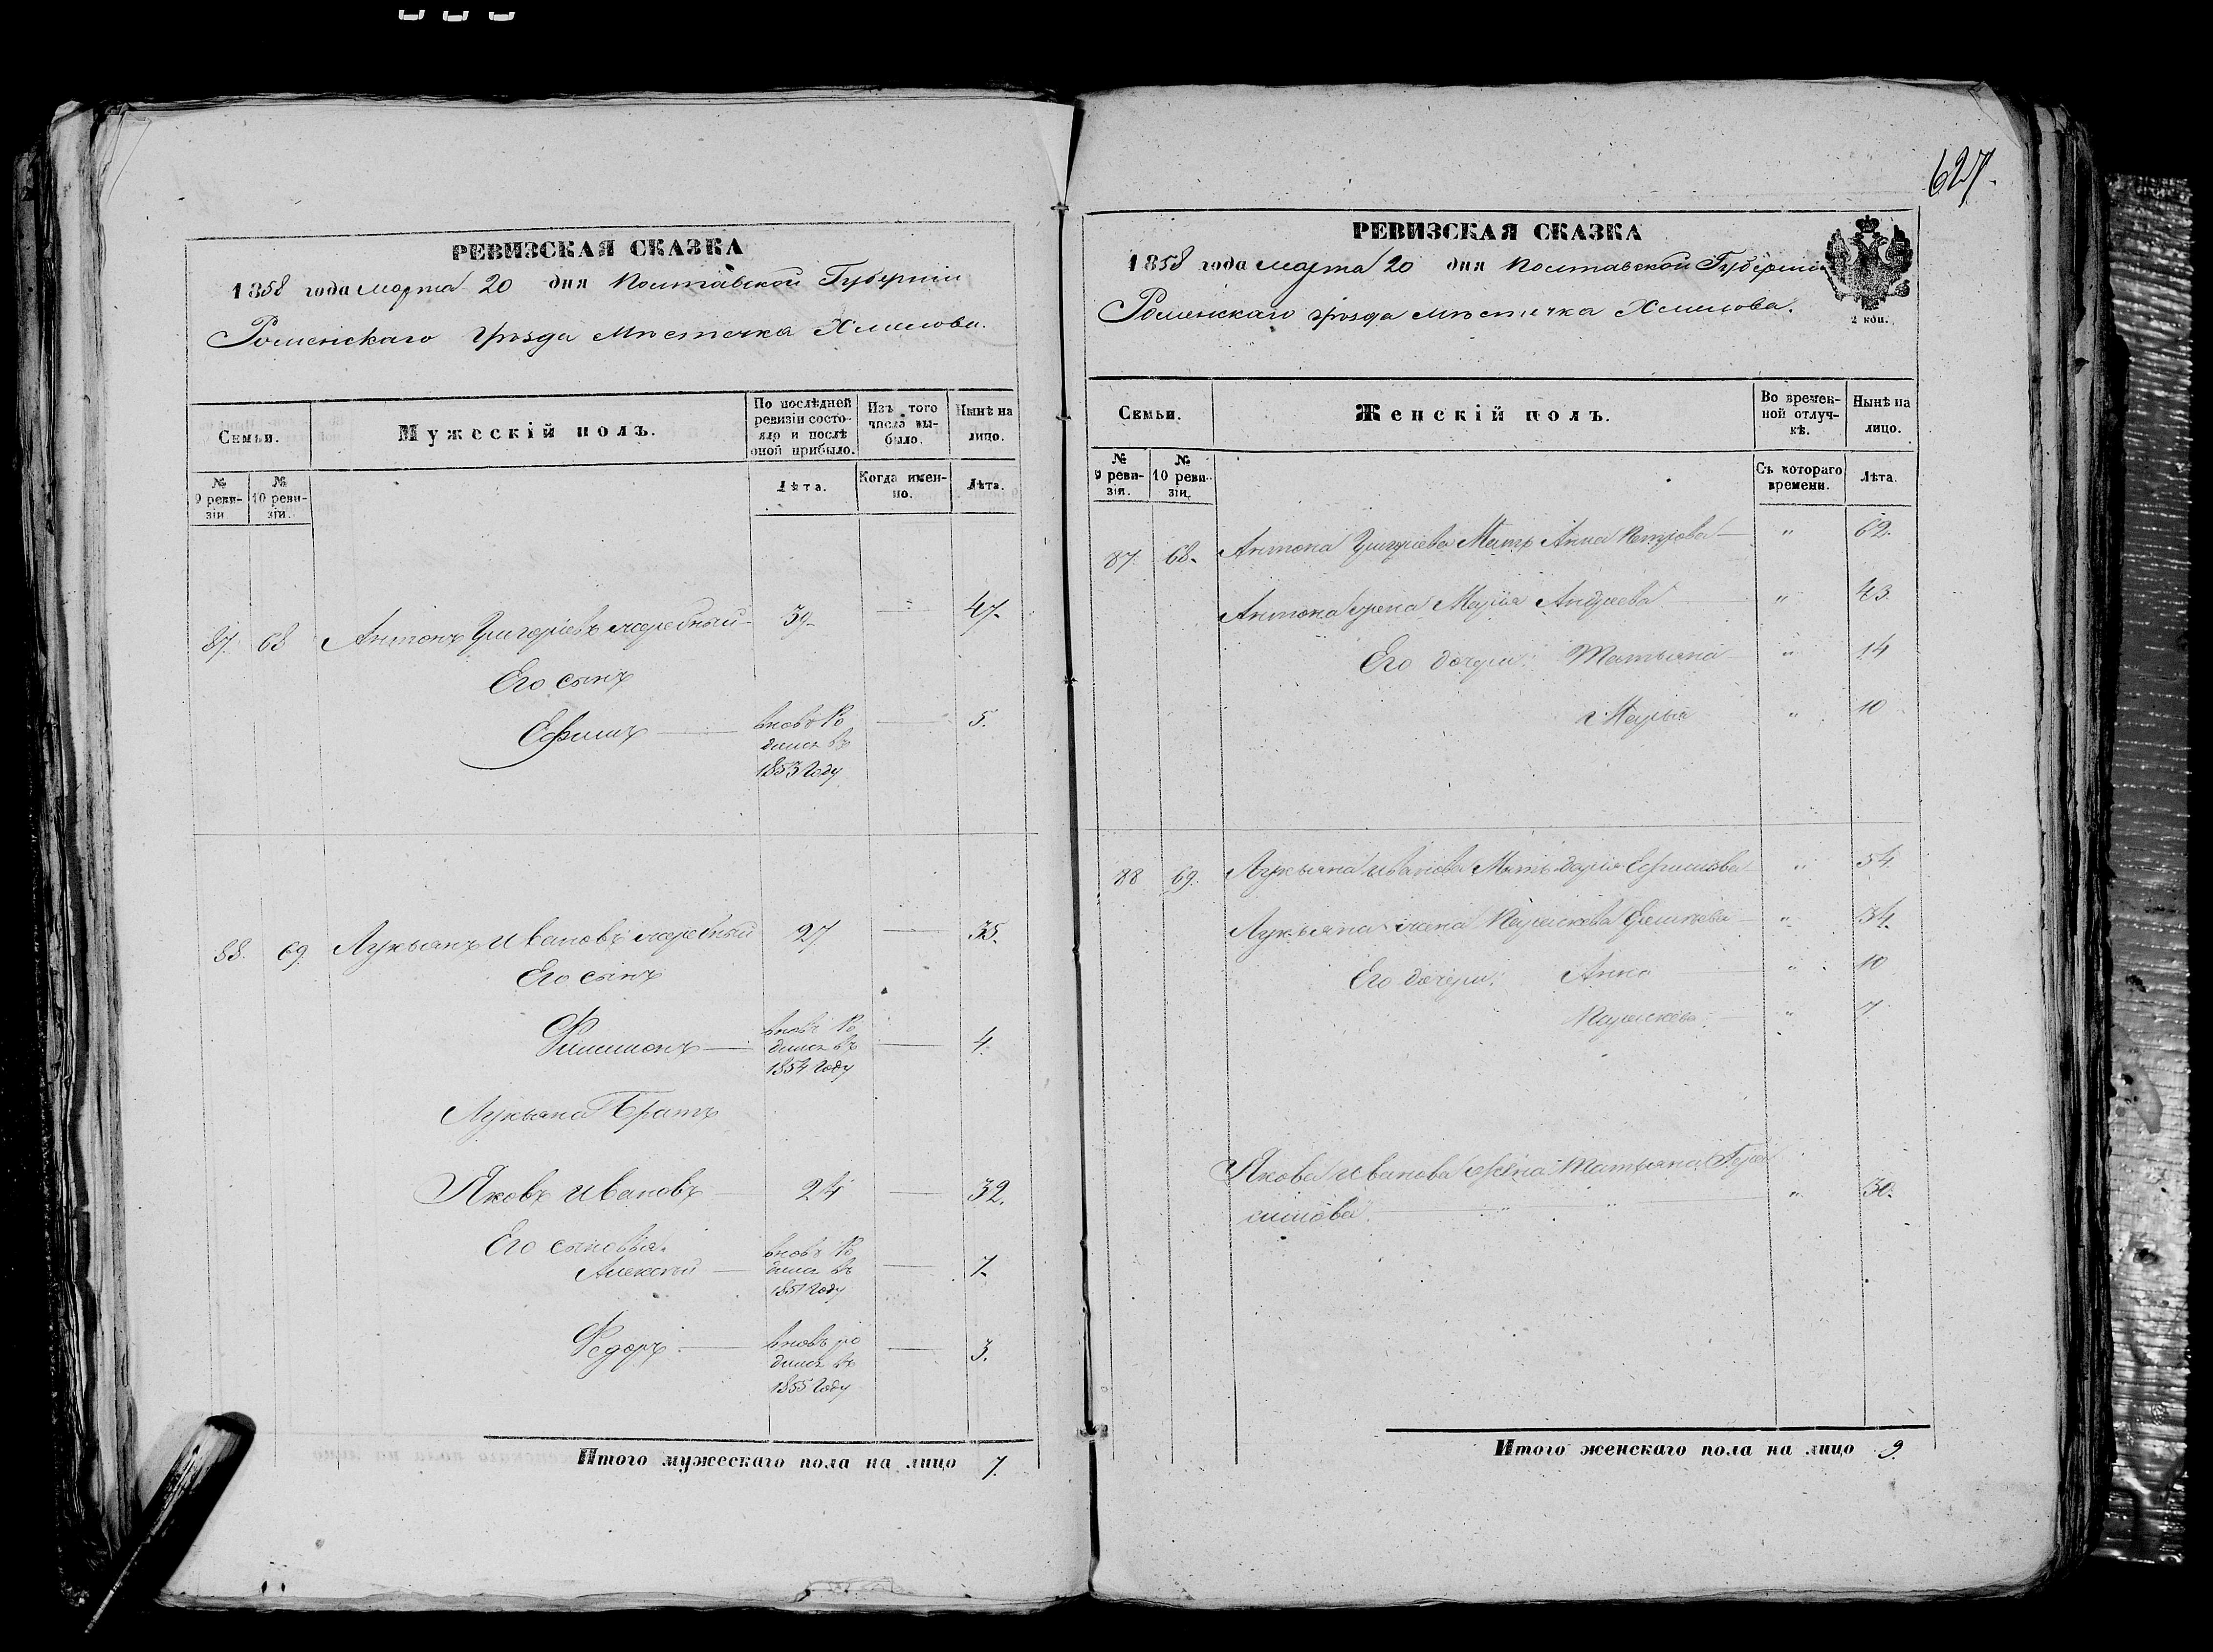 РЕВИЗСКАЯ СКАЗКА
1858 года марта 20 дня Полтавской Губерніи
Роменскаго уѣзда Мѣстечка Хмѣлова.
Семьи.
Мужескій полъ.
По послѣдней ревизіи состояло и послѣ оной прибыло.
Изъ того числа выбыло.
Нынѣ на лицо.
№ 9 ревизіи
№ 10 ревизіи.
Лѣта.
Когда именно.
Лѣта.
87. 68 Антонъ Григорьевъ 39. — 47.
Его сынъ
Ефимъ — вновь ро — 5.
дился въ
1853 году
88. 69. Лукьянъ Ивановъ 27 — 35.
Его сынъ
Филимонъ — вновь ро — 4.
дился въ
1854 году
Лукьяна Братъ
Яковъ Ивановъ — 24 — 32.
Его сыновья.
Алексѣй — вновь ро — 7.
дился въ
1851 году
Федоръ — вновь ро — 3.
дился въ
1855 году
Итого мужескаго пола на лицо 7.
627.
РЕВИЗСКАЯ СКАЗКА
1858 года марта 20 дня Полтавской Губерніи
Роменскаго уѣзда мѣстечка Хмѣлова.
2 коп.
Семьи.
Женскій полъ.
Во временной отлучкѣ.
Нынѣ на лицо.
№ 9 ревизіи.
№ 10 ревизіи.
Съ котораго времени.
Лѣта.
87. 68. Антона Григорьева Мать Анна Петрова — " 62.
Антона жена Марья Андреева — " 43.
Его дочери: Татьяна — " 14
Марья " 10
88 69. Лукьяна Иванова Мать Дарья Ефимова " 54.
Лукьяна жена Парасковья — " 34.
Его дочери: Анна — " 10
Парасковья — " 7
Якова Иванова жена Татьяна Гера
симова. — " 30.
Итого женскаго пола на лицо 9.